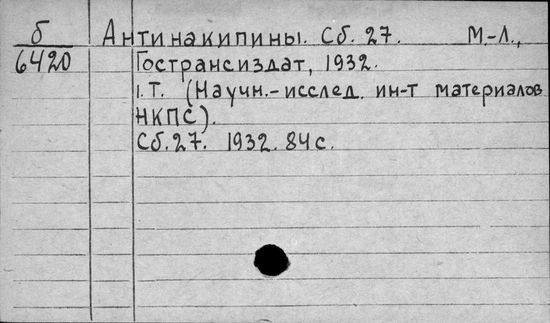 б Антинакипины. Сб. 27. М.-Л.,
6420 Гострансиздат, 1932.
1.Т. (Научн.-исслед. ин-т материалов
НКПС).
Сб. 27. 1932. 84 с.